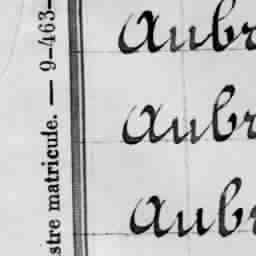 stre matricule. — 9-463-
Aubr
Aubr
Aubr